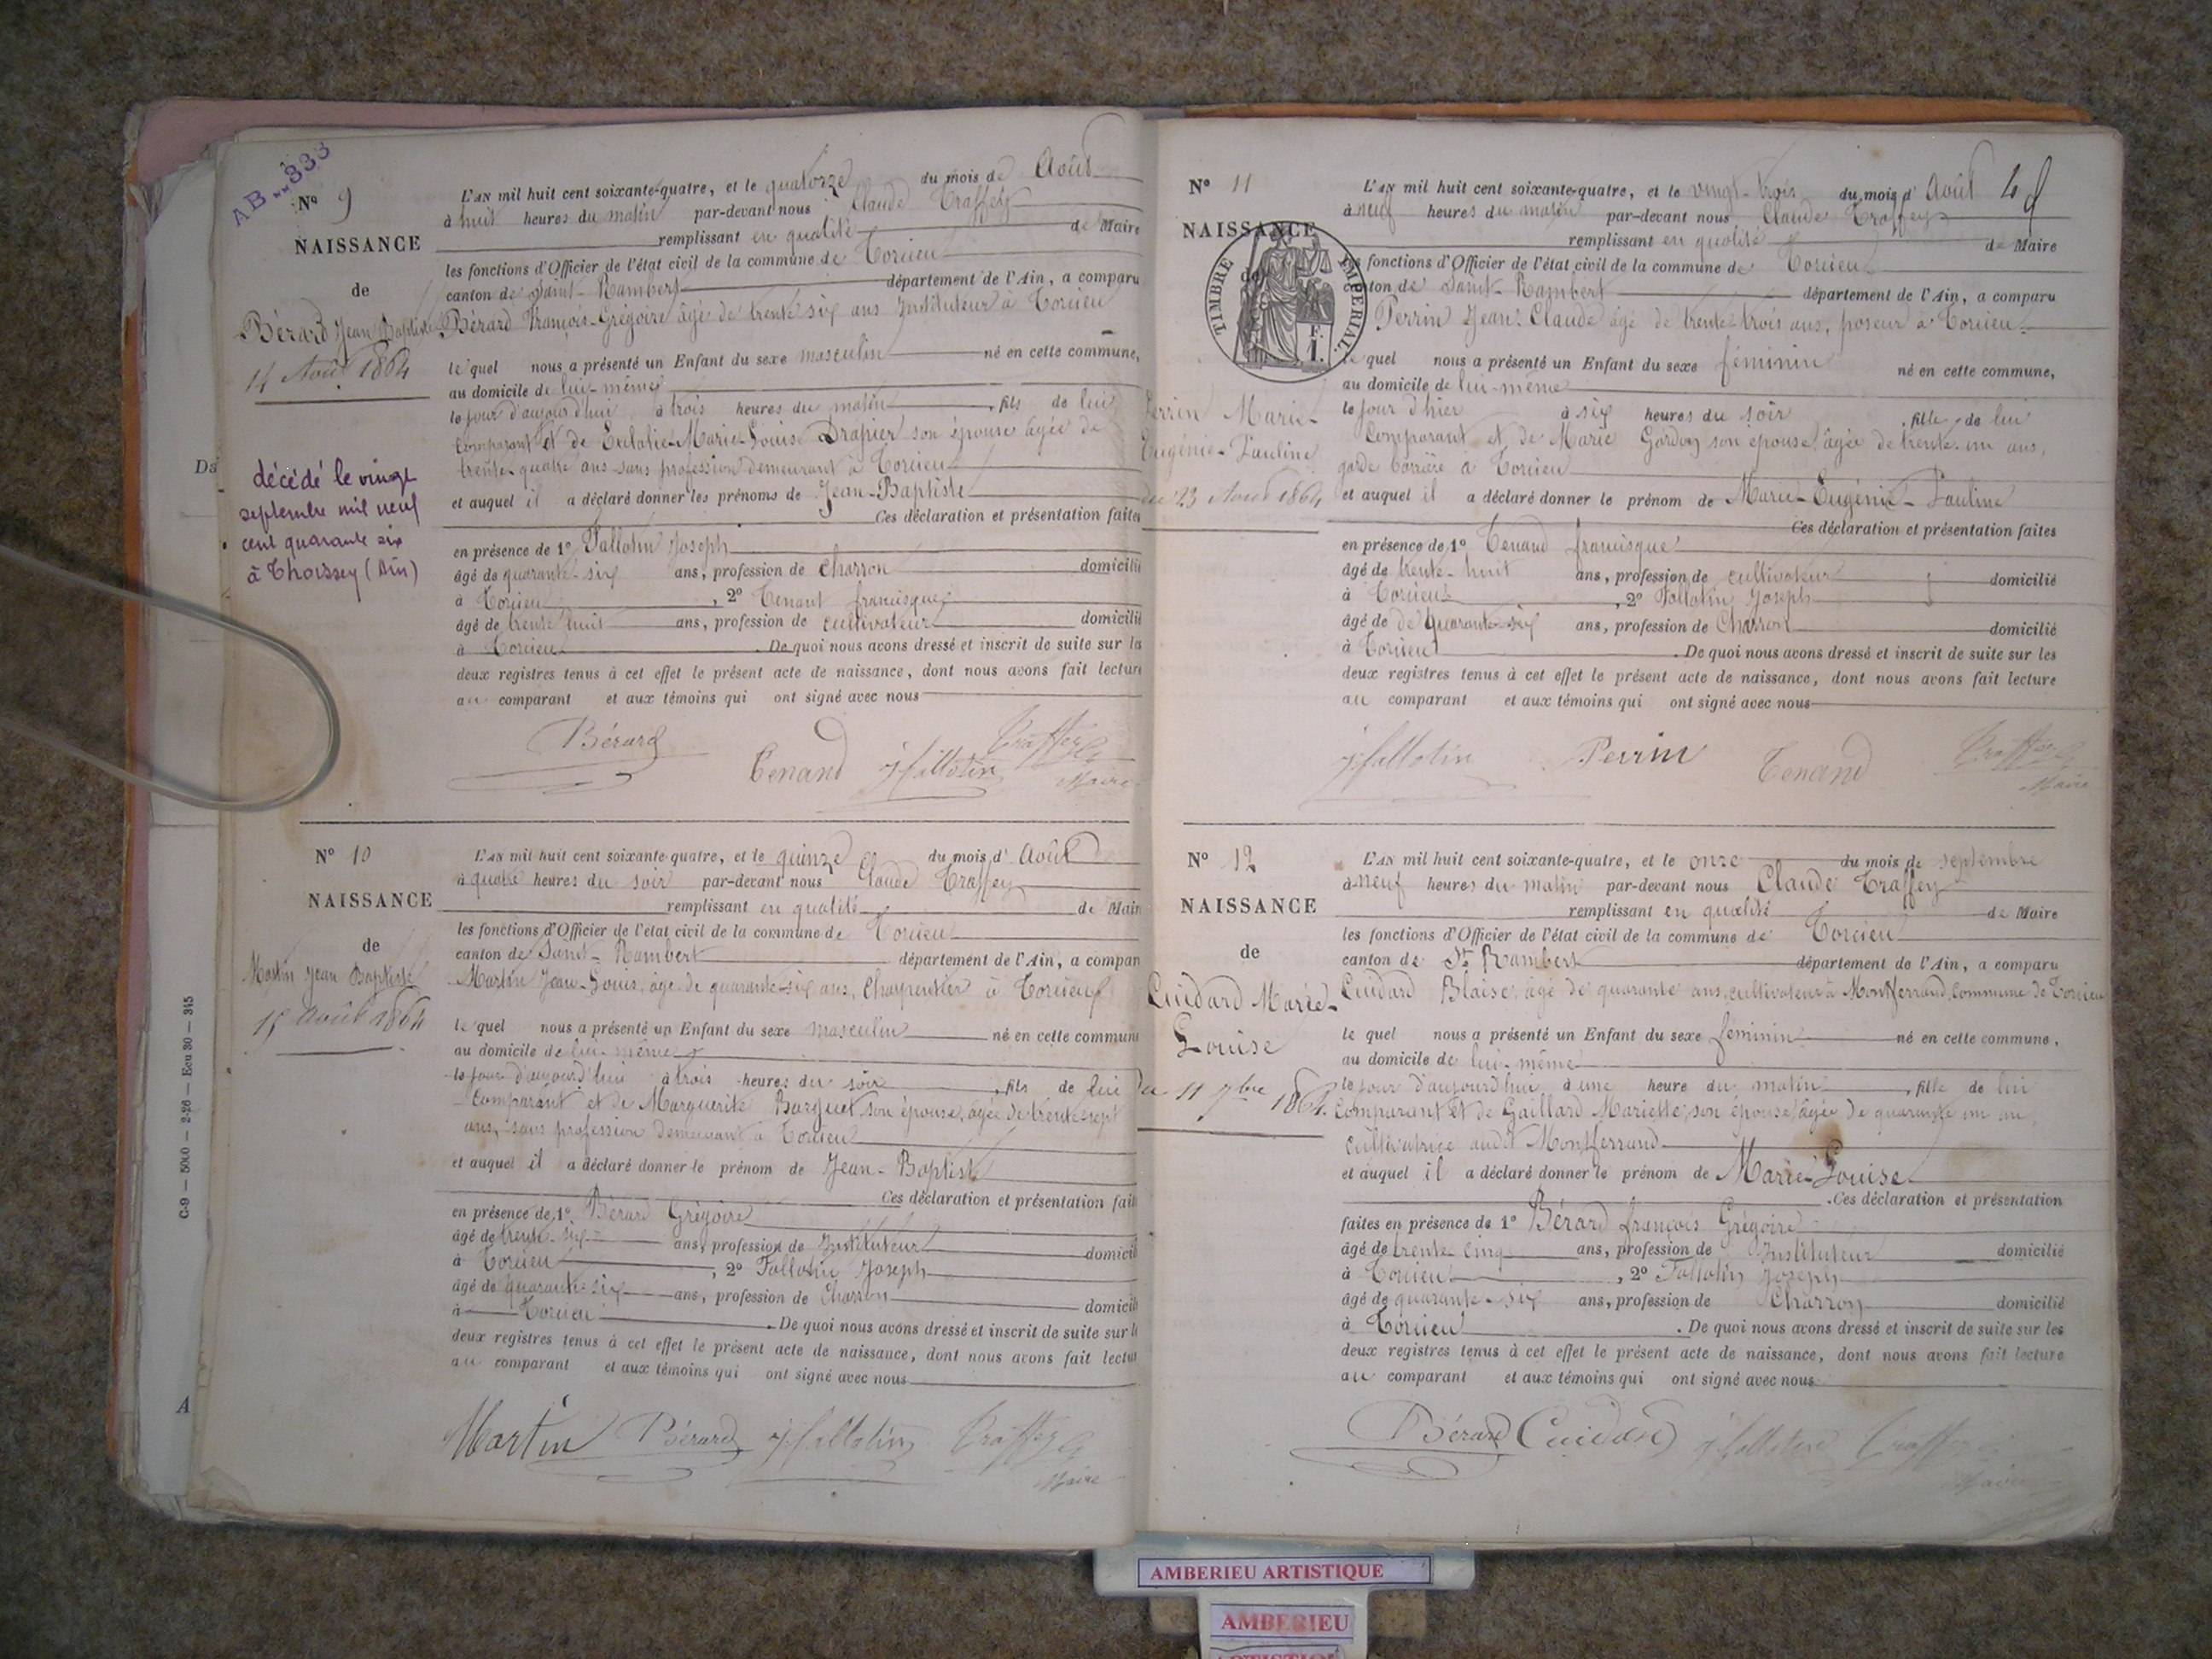 AB 333
Nº 9
NAISSANCE
de
Bérard Jean Baptiste
14 Août 1864
décédé le vingt
septembre mil neuf
cent quarante six
à Thoissey (Ain)
L'AN mil huit cent soixante-quatre, et le quatorze du mois de Août
à huit heures du matin par-devant nous Claude Traffey
remplissant en qualité de Maire
les fonctions d'Officier de l'état civil de la commune de Torcieu
canton de Saint-Rambert département de l'Ain, a comparu
Bérard François-Grégoire âgé de trente six ans Instituteur à Torcieu
lequel nous a présenté un Enfant du sexe masculin né en cette commune,
au domicile de lui-même
le jour d'aujourd'hui à trois heures du matin, fils de lui
comparant et de Marie-Louise Drapier son épouse âgée de
trente-quatre ans sans profession demeurant à Torcieu
et auquel il a déclaré donner les prénoms de Jean-Baptiste
Ces déclaration et présentation faites
en présence de 1º Fallotin Joseph
âgé de quarante-six ans, profession de Charron domicilié
à Torcieu, 2º Tenant francisque
âgé de trente huit ans, profession de cultivateur domicilié
à Torcieu. De quoi nous avons dressé et inscrit de suite sur les
deux registres tenus à cet effet le présent acte de naissance, dont nous avons fait lecture
au comparant et aux témoins qui ont signé avec nous
Bérard Tenand J Fallotin Traffey
Maire
Nº 10
NAISSANCE
de
Martin Jean Baptiste
15 Août 1864
L'AN mil huit cent soixante-quatre, et le quinze du mois d'Août
à quatre heures du soir par-devant nous Claude Traffey
remplissant en qualité de Maire
les fonctions d'Officier de l'état civil de la commune de Torcieu
canton de Saint-Rambert département de l'Ain, a comparu
Martin Jean-Louis, âgé de quarante-six ans, Charpentier à Torcieu
lequel nous a présenté un Enfant du sexe masculin né en cette commune
au domicile de lui-même
le jour d'aujourd'hui à trois heures du soir, fils de lui
comparant et de Marguerite son épouse, âgée de trente-sept
ans, sans profession demeurant à Torcieu
et auquel il a déclaré donner le prénom de Jean-Baptiste
Ces déclaration et présentation faites
en présence de 1º Bérard Grégoire
âgé de trente-six ans, profession de Instituteur domicilié
à Torcieu, 2º Fallotin Joseph
âgé de quarante-six ans, profession de Charron domicilié
à Torcieu. De quoi nous avons dressé et inscrit de suite sur les
deux registres tenus à cet effet le présent acte de naissance, dont nous avons fait lecture
au comparant et aux témoins qui ont signé avec nous
Martin Bérard J Fallotin Traffey
Maire
C-9 — 5000 — 2-26 — Ecu 30 — 345
Nº 11
NAISSANCE
TIMBRE IMPERIAL
F. 1.
Perrin Marie-
Eugénie-Pauline
du 23 Août 1864
L'AN mil huit cent soixante-quatre, et le vingt-trois du mois d'Août
à neuf heures du matin par-devant nous Claude Traffey
remplissant en qualité de Maire
les fonctions d'Officier de l'état civil de la commune de Torcieu
canton de Saint-Rambert département de l'Ain, a comparu
Perrin Jean-Claude âgé de trente-trois ans, poseur à Torcieu
lequel nous a présenté un Enfant du sexe féminin né en cette commune,
au domicile de lui-même
le jour d'hier à six heures du soir, fille de lui
comparant et de Marie Gordon son épouse, âgée de trente-un ans,
garde barrière à Torcieu
et auquel il a déclaré donner le prénom de Marie-Eugénie-Pauline
Ces déclaration et présentation faites
en présence de 1º Tenand francisque
âgé de trente-huit ans, profession de cultivateur domicilié
à Torcieu, 2º Fallotin Joseph
âgé de de quarante-six ans, profession de Charron domicilié
à Torcieu. De quoi nous avons dressé et inscrit de suite sur les
deux registres tenus à cet effet le présent acte de naissance, dont nous avons fait lecture
au comparant et aux témoins qui ont signé avec nous
J Fallotin Perrin Tenand Traffey
Maire
Nº 12
NAISSANCE
de
Cuidard Marie-
Louise
du 11 7bre 1864.
L'AN mil huit cent soixante-quatre, et le onze du mois de septembre
à neuf heures du matin par-devant nous Claude Traffey
remplissant en qualité de Maire
les fonctions d'Officier de l'état civil de la commune de Torcieu
canton de St Rambert département de l'Ain, a comparu
Cuidard Blaise, âgé de quarante ans, cultivateur à Montferrand, Commune de Torcieu
lequel nous a présenté un Enfant du sexe féminin né en cette commune,
au domicile de lui-même
le jour d'aujourd'hui à une heure du matin, fille de lui
comparant et de Gaillard Mariette, son épouse âgée de quarante un an,
cultivatrice audit Montferrand
et auquel il a déclaré donner le prénom de Marie-Louise
Ces déclaration et présentation
faites en présence de 1º Bérard françois Grégoire
âgé de trente cinq ans, profession de Instituteur domicilié
à Torcieu, 2º Fallotin Joseph
âgé de quarante-six ans, profession de Charron domicilié
à Torcieu. De quoi nous avons dressé et inscrit de suite sur les
deux registres tenus à cet effet le présent acte de naissance, dont nous avons fait lecture
au comparant et aux témoins qui ont signé avec nous
Bérard Cuidard J Fallotin Traffey
Maire
AMBERIEU ARTISTIQUE
AMBERIEU
ARTISTIQUE